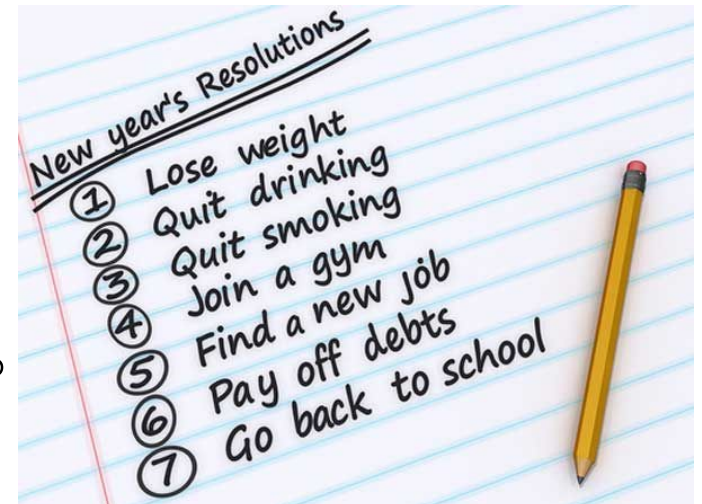 New year's Resolutions
1 Lose weight
2 Quit drinking
3 Quit smoking
4 Join a gym
5 Find a new job
6 Pay off debts
7 Go back to school